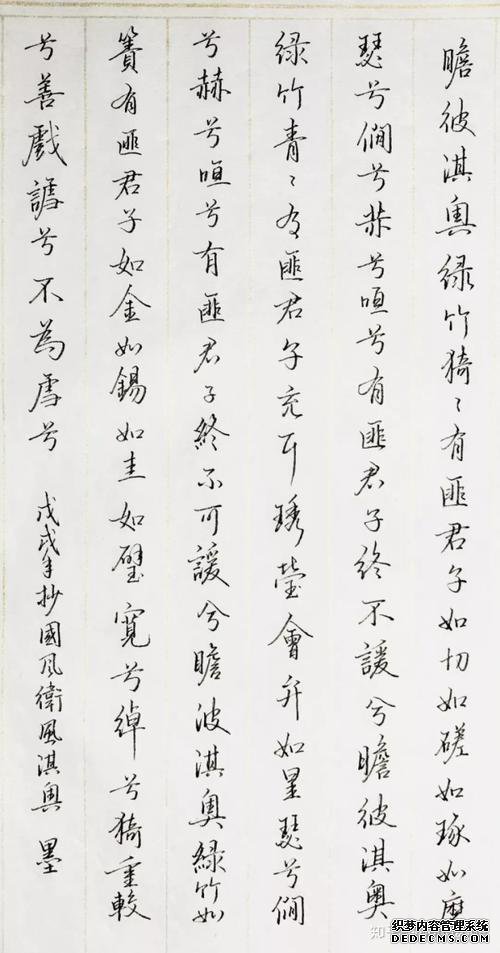 瞻彼淇奧绿竹猗〻有匪君子如切如磋如琢如磨
瑟兮僩兮赫兮咺兮有匪君子终不諼兮瞻彼淇奧
绿竹青〻有匪君子充耳琇瑩會弁如星瑟兮僩
兮赫兮咺兮有匪君子終不可諼兮瞻波淇奧綠竹如
簀有匪君子如金如錫如圭如璧寬兮綽兮猗重較
兮善戲謔兮不為虐兮 戊戌年抄國风衛風淇奧 墨
织梦内容管理系统
DEDECMS.COM